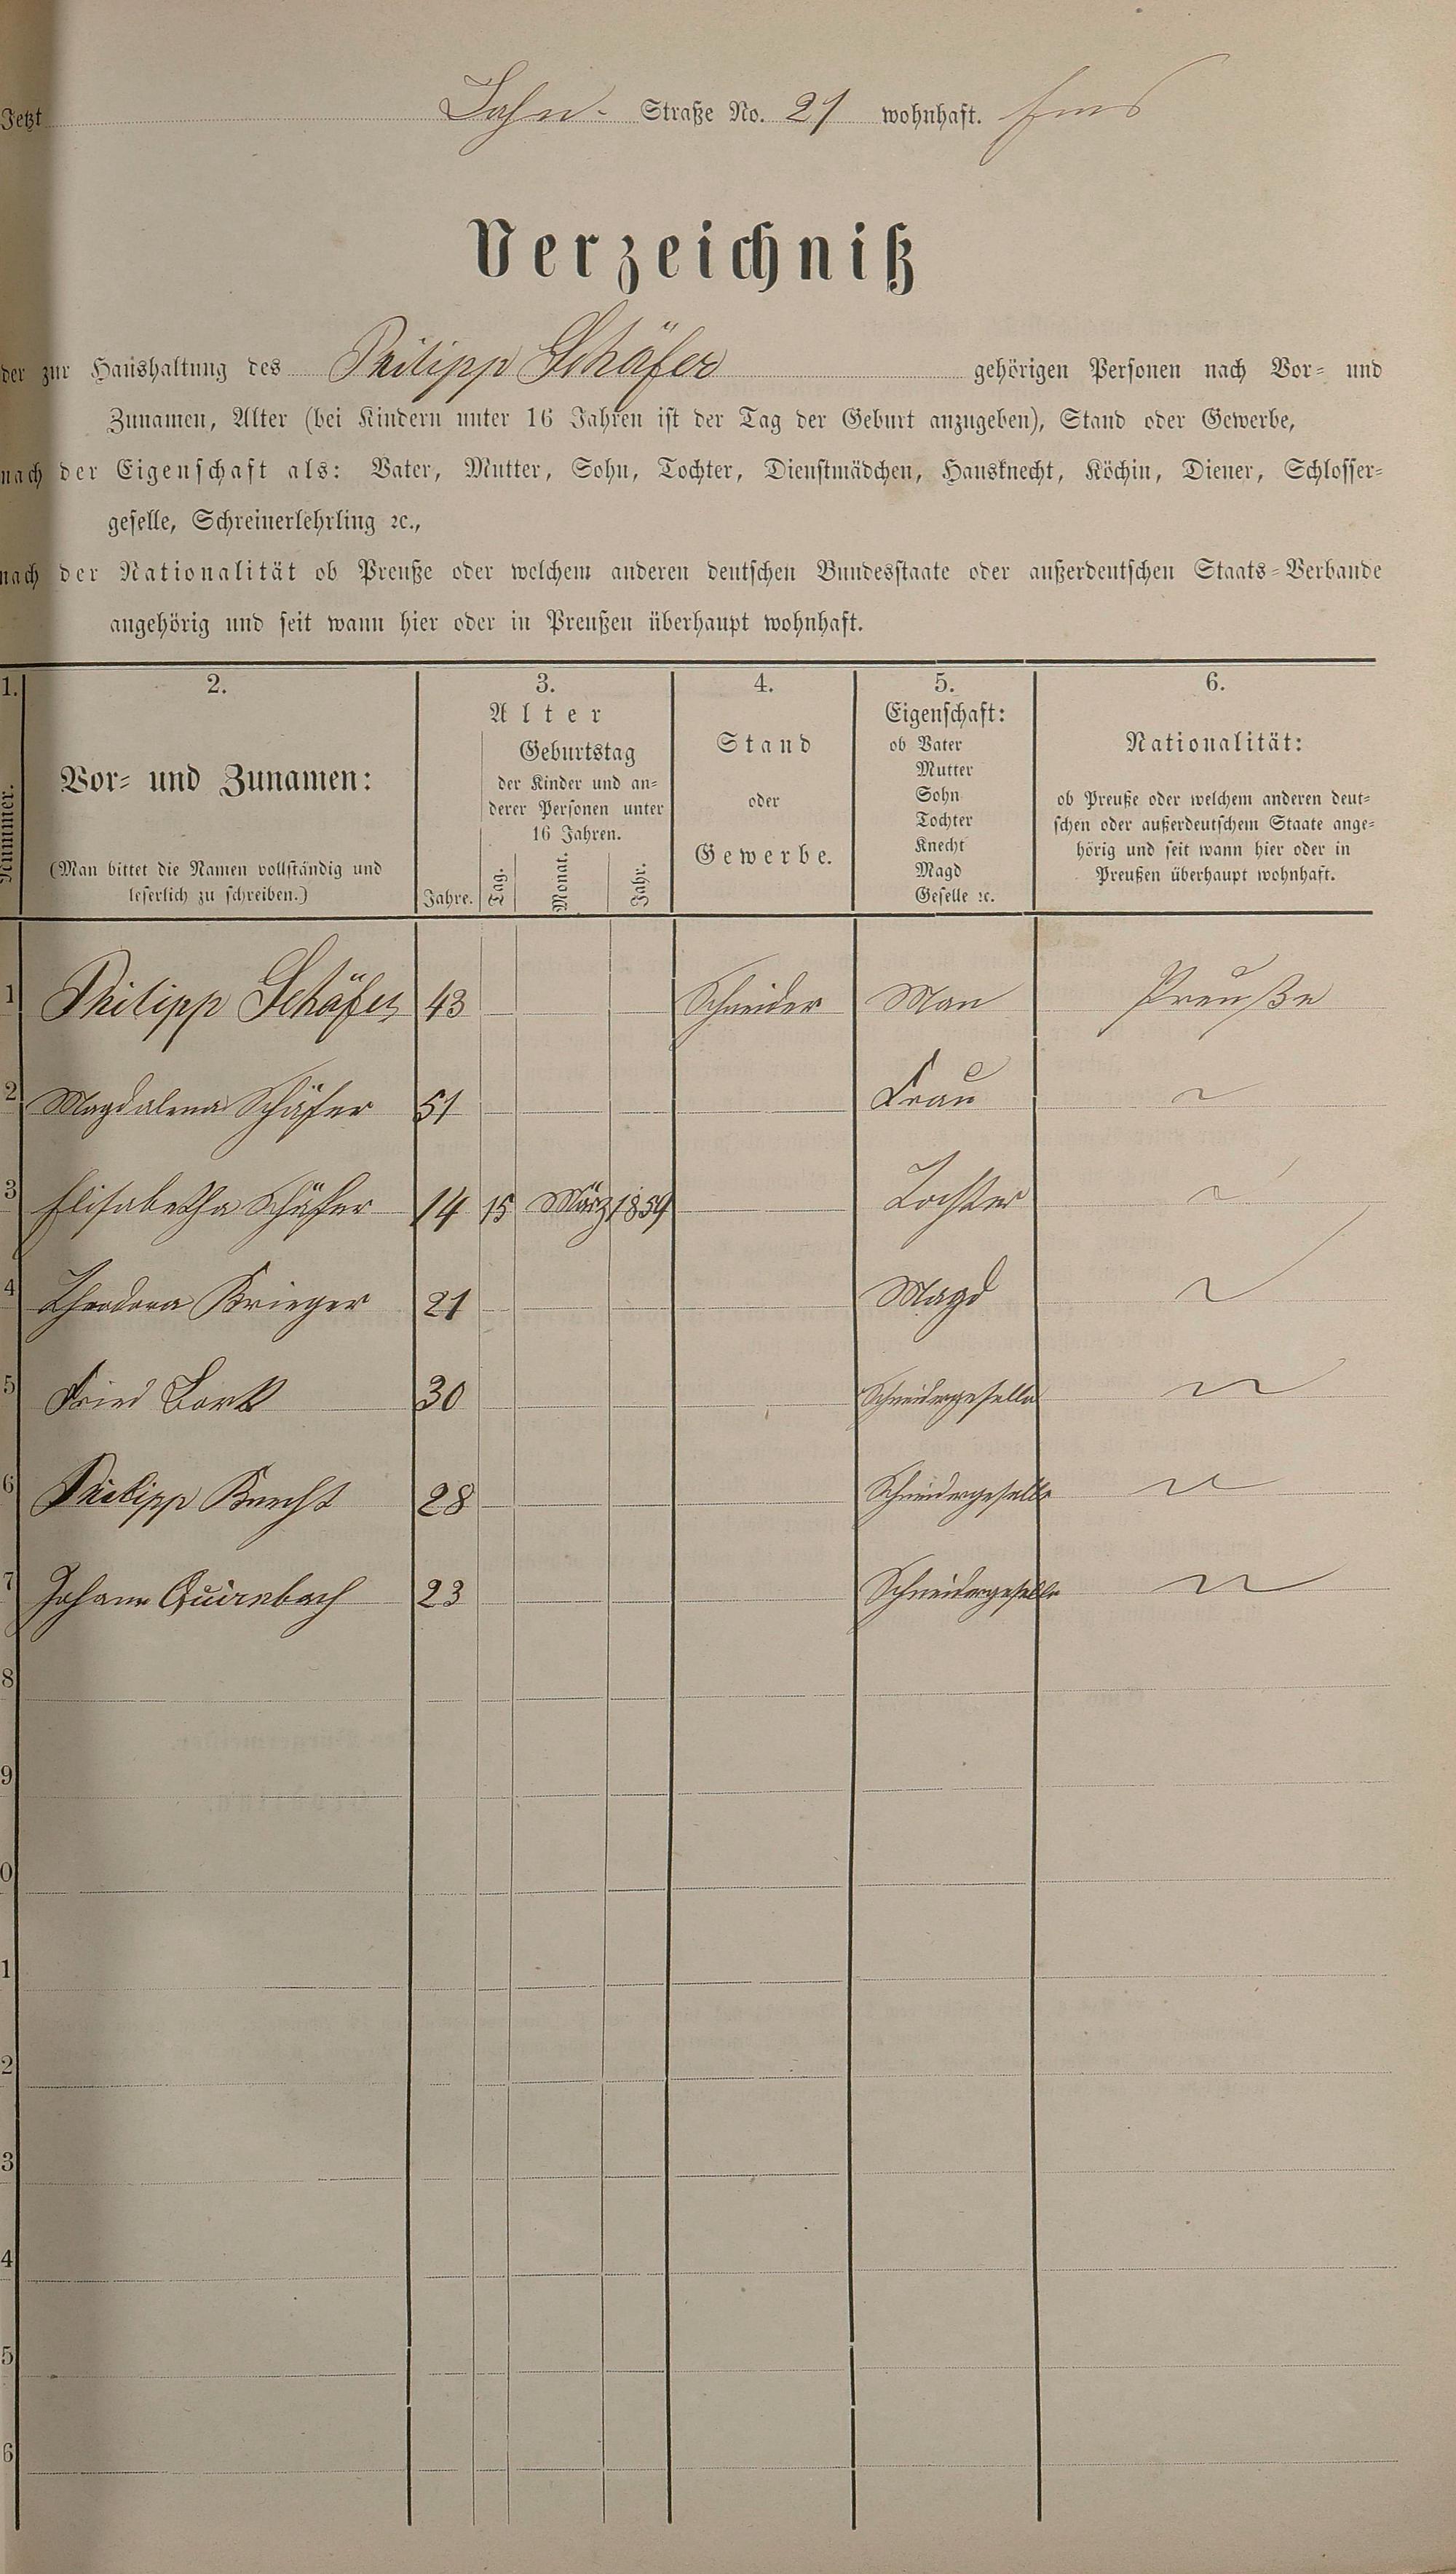 Jetzt Lahn- Straße No. 21 wohnhaft. Ems
Verzeichniß
der zur Haushaltung des Philipp Schäfer gehörigen Personen nach Vor- und
Zunamen, Alter (bei Kindern unter 16 Jahren ist der Tag der Geburt anzugeben), Stand oder Gewerbe,
nach der Eigenschaft als: Vater, Mutter, Sohn, Tochter, Dienstmädchen, Hausknecht, Köchin, Diener, Schlosser-
geselle, Schreinerlehrling ꝛc.,
nach der Nationalität ob Preuße oder welchem anderen deutschen Bundesstaate oder außerdeutschen Staats-Verbande
angehörig und seit wann hier oder in Preußen überhaupt wohnhaft.
1. 2. 3. 4. 5. 6.
Nummer.
Vor- und Zunamen:
(Man bittet die Namen vollständig und
leserlich zu schreiben.)
Alter
Jahre.
Geburtstag
der Kinder und an-
derer Personen unter
16 Jahren.
Tag. Monat. Jahr.
Stand
oder
Gewerbe.
Eigenschaft:
ob Vater
Mutter
Sohn
Tochter
Knecht
Magd
Geselle ꝛc.
Nationalität:
ob Preuße oder welchem anderen deut-
schen oder außerdeutschem Staate ange-
hörig und seit wann hier oder in
Preußen überhaupt wohnhaft.
1 Philipp Schäfer 43 Schneider Man Preuße
2 Magdalena Schäfer 51 Frau ~
3 Elisabetha Schäfer 14 15 März 1859 Tochter ~
4 Theodora Krieger 21 Magd ~
5 Fried 30 Schneidergeselle ~
6 Philipp Knecht 28 Schneidergeselle ~
7 Johann Quirnbach 23 Schneidergeselle ~
8
9
0
1
2
3
4
5
6